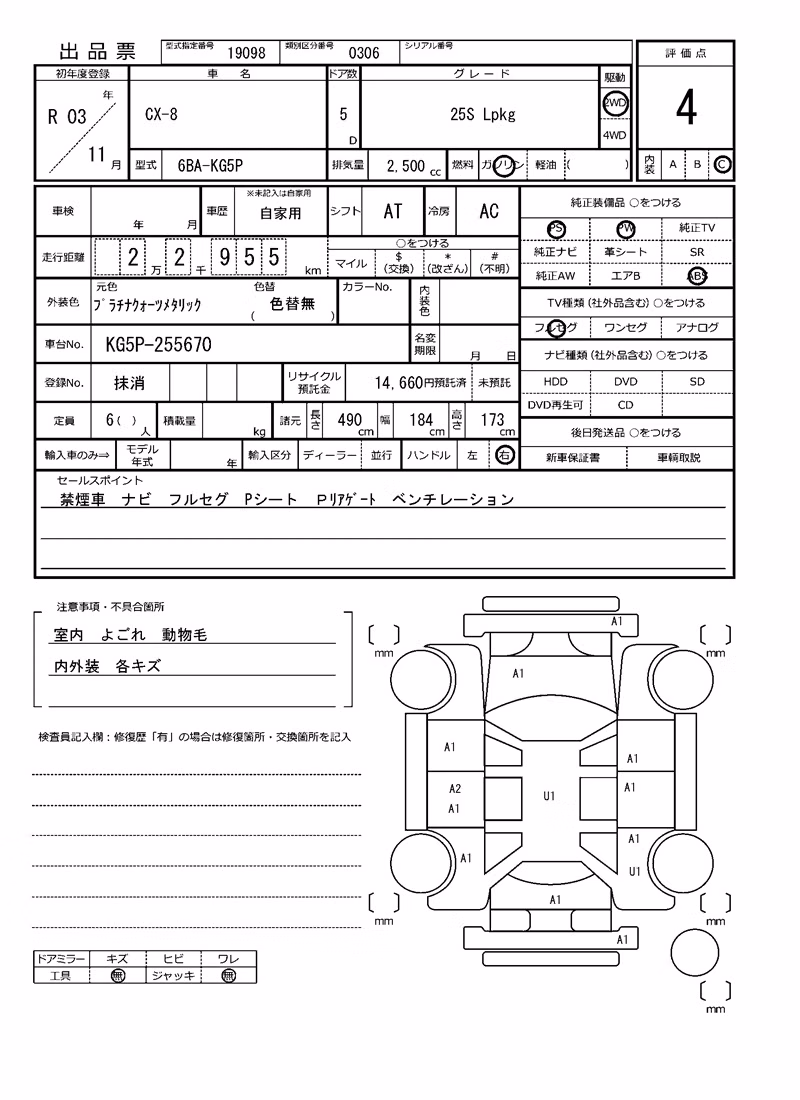 出品票 型式指定番号 19098 類別区分番号 0306 シリアル番号
評価点
初年度登録 車 名 ドア数 グレード 駆動
年
R 03 CX-8 5 25S Lpkg 2WD 4
D 4WD
11 月 型式 6BA-KG5P 排気量 2,500 cc 燃料 ガソリン 軽油 ( ) 内装 A B C
車検 年 月 車歴 ※未記入は自家用 自家用 シフト AT 冷房 AC 純正装備品 ○をつける
PS PW 純正TV
走行距離 2 万 2 千 9 5 5 km ○をつける
マイル $(交換) *(改ざん) #(不明)
純正ナビ 革シート SR
純正AW エアB ABS
外装色 元色 色替 カラーNo. 内装色
プラチナクォーツメタリック ( 色替無 )
TV種類(社外品含む)○をつける
フルセグ ワンセグ アナログ
車台No. KG5P-255670 名変期限 月 日
ナビ種類(社外品含む)○をつける
登録No. 抹消 リサイクル預託金 14,660円預託済 未預託
HDD DVD SD
DVD再生可 CD
定員 6( ) 人 積載量 kg 諸元 長さ 490 cm 幅 184 cm 高さ 173 cm
後日発送品 ○をつける
輸入車のみ⇒ モデル年式 年 輸入区分 ディーラー 並行 ハンドル 左 右
新車保証書 車輌取説
セールスポイント
禁煙車 ナビ フルセグ Pシート Pリアゲート ベンチレーション
注意事項・不具合箇所
室内 よごれ 動物毛
内外装 各キズ
検査員記入欄：修復歴「有」の場合は修復箇所・交換箇所を記入
A1
mm mm
A1
A1 A1
A2 A1
A1 U1
A1
A1 U1
A1
mm mm
A1
mm
ドアミラー キズ ヒビ ワレ
工具 無 ジャッキ 無